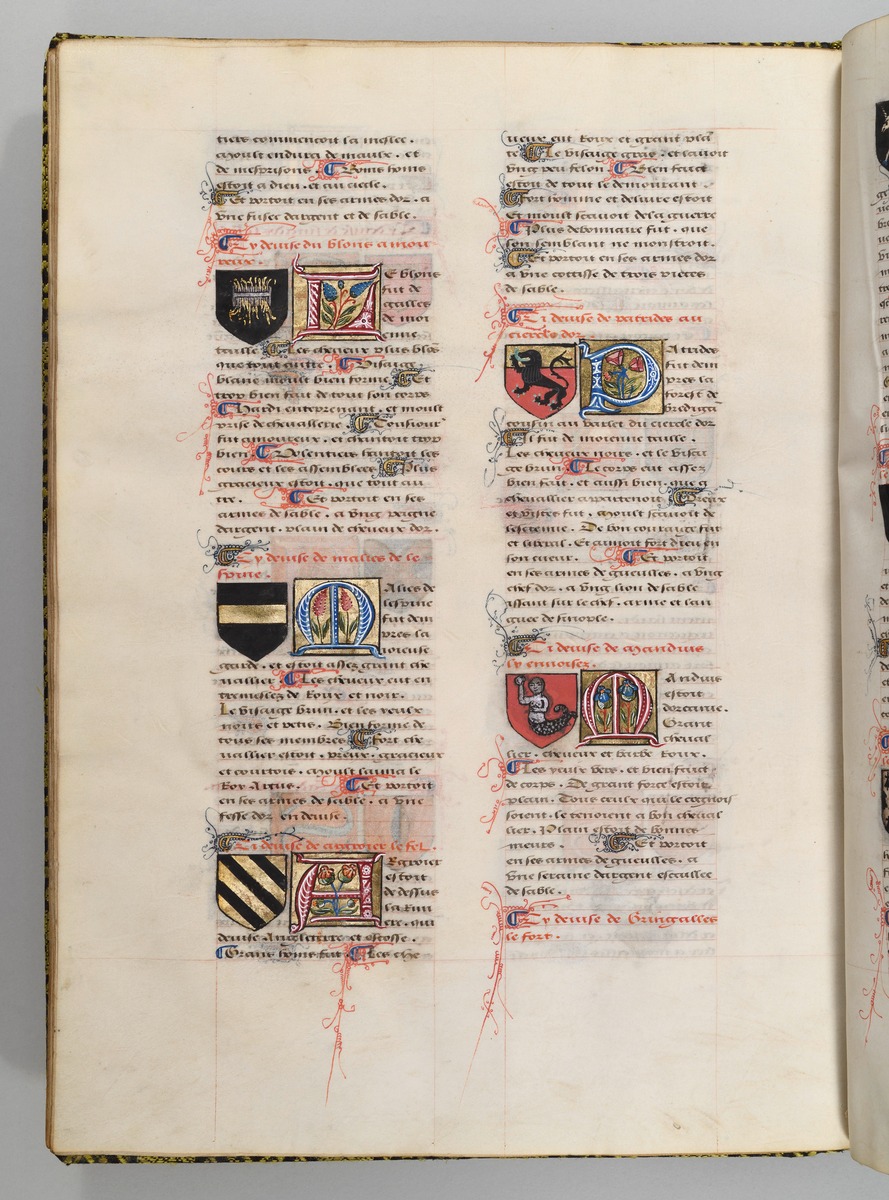 tiers commencoit la meslee .
Moult endura de maulx . et
de mesprisons . Bons homs
estoit a dieu . et au ciecle .
Et portoit en ses armes dor . a
vne fusee dargent et de sable .
Cy deuise du blons amou
reux .
Le blons
fut de
de moi
enne
taille . Les cheueux plus blos
que tout aultre . Visaige
blanc moult bien forme . Et
trop bien fait de tout son corps
Hardi entreprenant . et moult
prise de cheuallerie . Tousiours
fut amoureux . et chantoit trop
bien . Volentiers hantoit les
cours et les assemblees . Plus
gracieux estoit . que tout au
tre . Et portoit en ses
armes de sable . a vng peigne
dargent . plain de cheueux dor .
Cy deuise de malies de le
spine .
Malies de
lespine
fut dem
pres la
ioieuse
garde . et estoit assez grant che
uallier . Les cheueux eut en
tremeslez de Roux et noir .
Le visaige brun . et les yeulx
noirs et petis . Bien forme de
tous ses membres . Fort che
uallier estoit . preux . gracieux
et courtois . Moult lauma le
Roy Artus . Et portoit
en ses armes de sable . a vne
fesse dor en deuise .
Ci deuise de agroier le fel .
Agroier
estoit
de dessus
la Riui
ere . qui
deuise Angleterre et escosse .
Grans homs fut . Les che
ueux eut Roux et grant plan
te . Le visaige gras . et lauoit
vng peu felon . Bien faict
estoit de tout le demourant .
Fort homme et deliure estoit
Et moult scauoit de la guerre
Plus debonnaire fut . que
son semblant ne monstroit .
Et portoit en ses armes dor
a vne cottisse de trois pieces
de sable .
Ci deuise de patrides au
ciercle dor .
Patrides
fut dem
pres la
forest de
cousin au varlet du ciercle dor
Il fut de moienne taille .
Les cheueux noirs . et le visai
ge brun . Le corps eut assez
bien fait . et aussi bien . que a
cheuallier appartenoit . Preux
et vistes fut . moult scauoit de
lescremie . De bon couraige fut
et liberal . Et amoit fort dieu en
son cueur . Et portoit
en ses armes de gueulles . a vng
chef dor . a vng lion de sable
issant sur le chef . arme et lan
gue de sinople .
Ci deuise de Mandius
lyenuoisez .
Mandius
estoit
Grant
cheual
lier . cheueux et barbe Roux .
Les yeulx vers . et bien faict
de corps . De grant force estoit
plain . Tous ceulx qui le cognois
soient . le tenoient a bon cheual
lier . Plain estoit de bonnes
meurs . Et portoit
en ses armes de gueulles . a
vne seraine dargent escaillee
de sable .
Cy deuise de Gringalles
le fort .